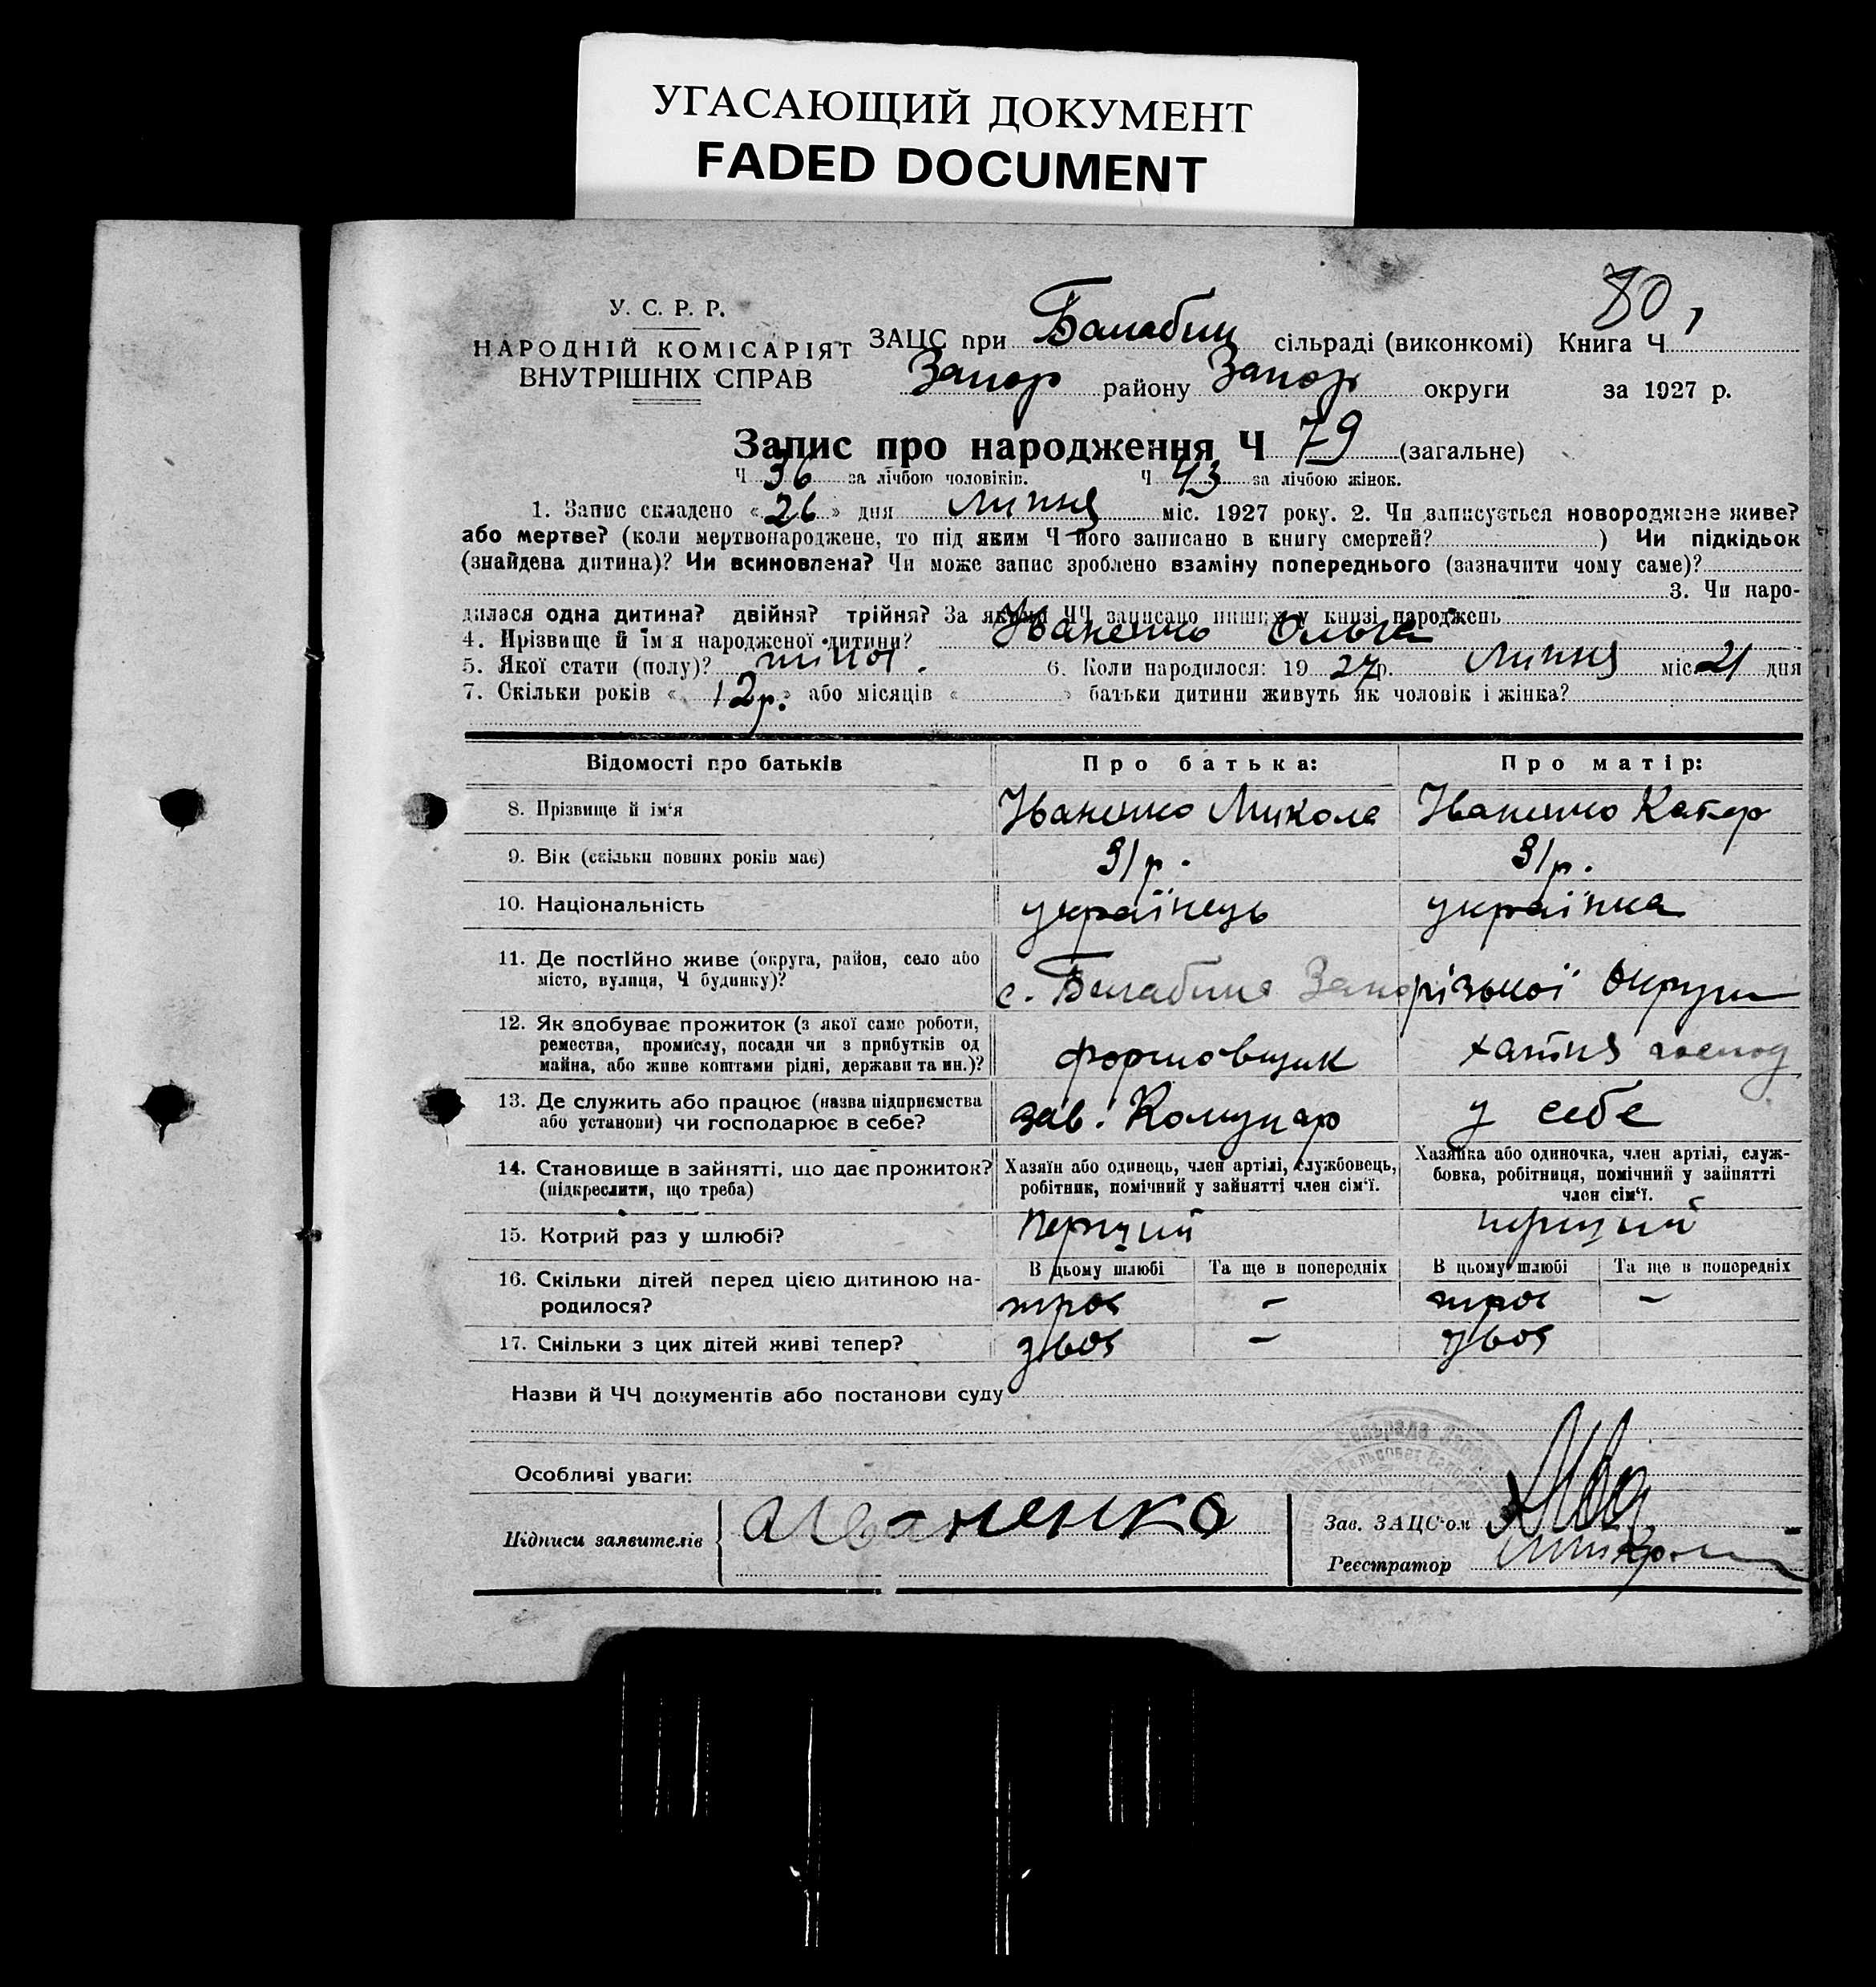 УГАСАЮЩИЙ ДОКУМЕНТ
FADED DOCUMENT
80,
У. С. Р. Р.
НАРОДНІЙ КОМІСАРІЯТ
ВНУТРІШНІХ СПРАВ
ЗАЦС при Балабин сільраді (виконкомі) Книга Ч.
Запор району Запоріз округи за 1927 р.
Запис про народження Ч 79 (загальне)
Ч 36 за лічбою чоловіків. Ч 43 за лічбою жінок.
1. Запис складено «26» дня липня міс. 1927 року. 2. Чи записується новороджене живе?
або мертве? (коли мертвонароджене, то під яким Ч його записано в книгу смертей? ) Чи підкідьок
(знайдена дитина)? Чи всиновлена? Чи може запис зроблено взаміну попереднього (зазначити чому саме)?
3. Чи наро-
дилася одна дитина? двійня? трійня? За якими ЧЧ записано инших у книзі народжень
4. Прізвище й ім'я народженої дитини? Іваненко Ольга
5. Якої стати (полу)? жіноч. 6. Коли народилося: 1927р. липня міс. 21 дня
7. Скільки років «12р.» або місяців « » батьки дитини живуть як чоловік і жінка?
Відомості про батьків Про батька: Про матір:
8. Прізвище й ім'я Іваненко Микола Іваненко Катер
9. Вік (скільки повних років має) 31р. 31р.
10. Національність українець українка
11. Де постійно живе (округа, район, село або
місто, вулиця, Ч будинку)? с. Балабине Запорізької Округи
12. Як здобуває прожиток (з якої саме роботи,
ремества, промислу, посади чи з прибутків од
майна, або живе коштами рідні, держави та ин.)? формовщик хатня господ
13. Де служить або працює (назва підприємства
або установи) чи господарює в себе? зав. Комунар у себе
14. Становище в зайнятті, що дає прожиток?
(підкреслити, що треба)
Хазяїн або одинець, член артілі, службовець,
робітник, помічний у зайнятті член сім'ї.
Хазяйка або одиночка, член артілі, служ-
бовка, робітниця, помічний у зайнятті
член сім'ї.
15. Котрий раз у шлюбі? перший перший
16. Скільки дітей перед цією дитиною на-
родилося?
В цьому шлюбі Та ще в попередніх В цьому шлюбі Та ще в попередніх
троє – троє –
17. Скільки з цих дітей живі тепер? двоє – двоє
Назви й ЧЧ документів або постанови суду
Особливі уваги:
Підписи заявителів Иваненко
Зав. ЗАЦС'ом
Реєстратор